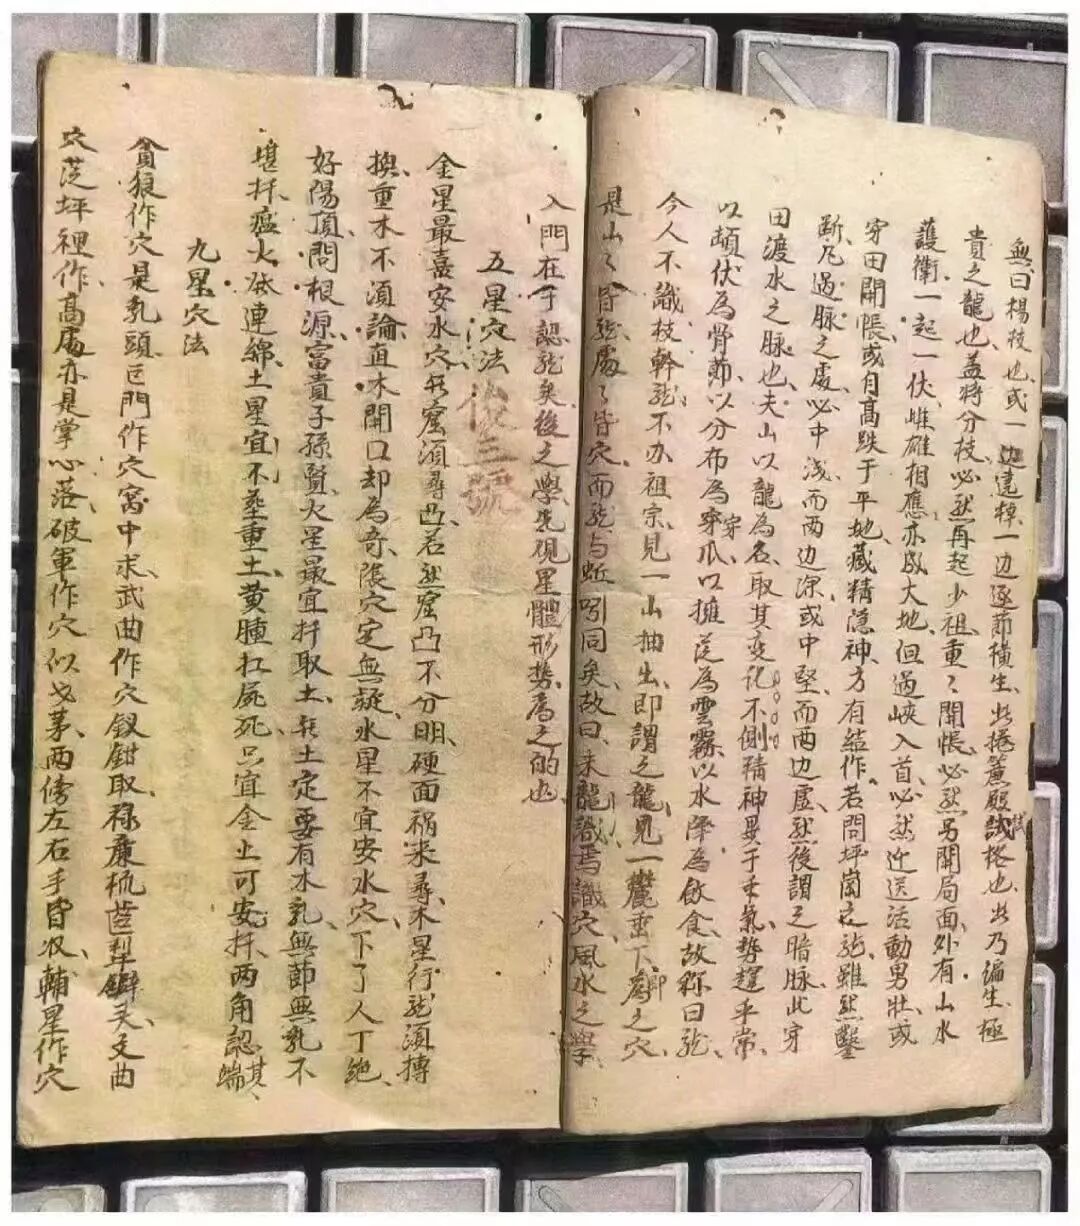 無曰楊枝也或一边違棹一边逐節橫生此捲簾殿試格也此乃偏生極
貴之龍也蓋將分枝必然再起少祖重〻開帳必然另開局面外有山水
護衛一起一伏雌雄相應亦成大地但過峽入首必然迎送活動男壯或
穿田開帳或自高跌于平地藏精隱神方有結作若問坪崗之龍雖然鑿
斷凡過脉之處必中淺而两边深或中堅而两边虛然後謂之暗脉此穿
田渡水之脉也夫山以龍為名取其变化不側精神異于來氣势趕平常
以頓伏為骨節以分布為穿爪以擁從為雲霧以水降為飲食故称曰龍
今人不識枝幹龍不办祖宗見一山抽出即謂之龍見一欎垂下即為之穴
是山〻皆龍處〻皆穴而龍与蚯蚓同矣故曰未龍識焉識穴風水之學
入門在于認龍矣後之學先視星體形势為之的也
五星穴法
金星最喜安水穴有窟湏尋凸若然窟凸不分明硬面祸来尋木星行龍湏摶
換重木不湏論直木開口却為奇張穴定無疑水星不宜安水穴下了人丁绝
好陽頂問根源富貴子孫賢火星最宜扦取土有土定要有水乳無節無乳不
堪扦瘟火欲連綿土星宜不塟重土黄腫扛屍死只宜金上可安扦两角認其端
九星穴法
貪狼作穴是乳頭巨門作穴窝中求武曲作穴釵鉗取禄廉梳齿犁鐴头文曲
穴從坪裡作高處亦是掌心落破軍作穴似戈茅两傍左右手皆收輔星作穴